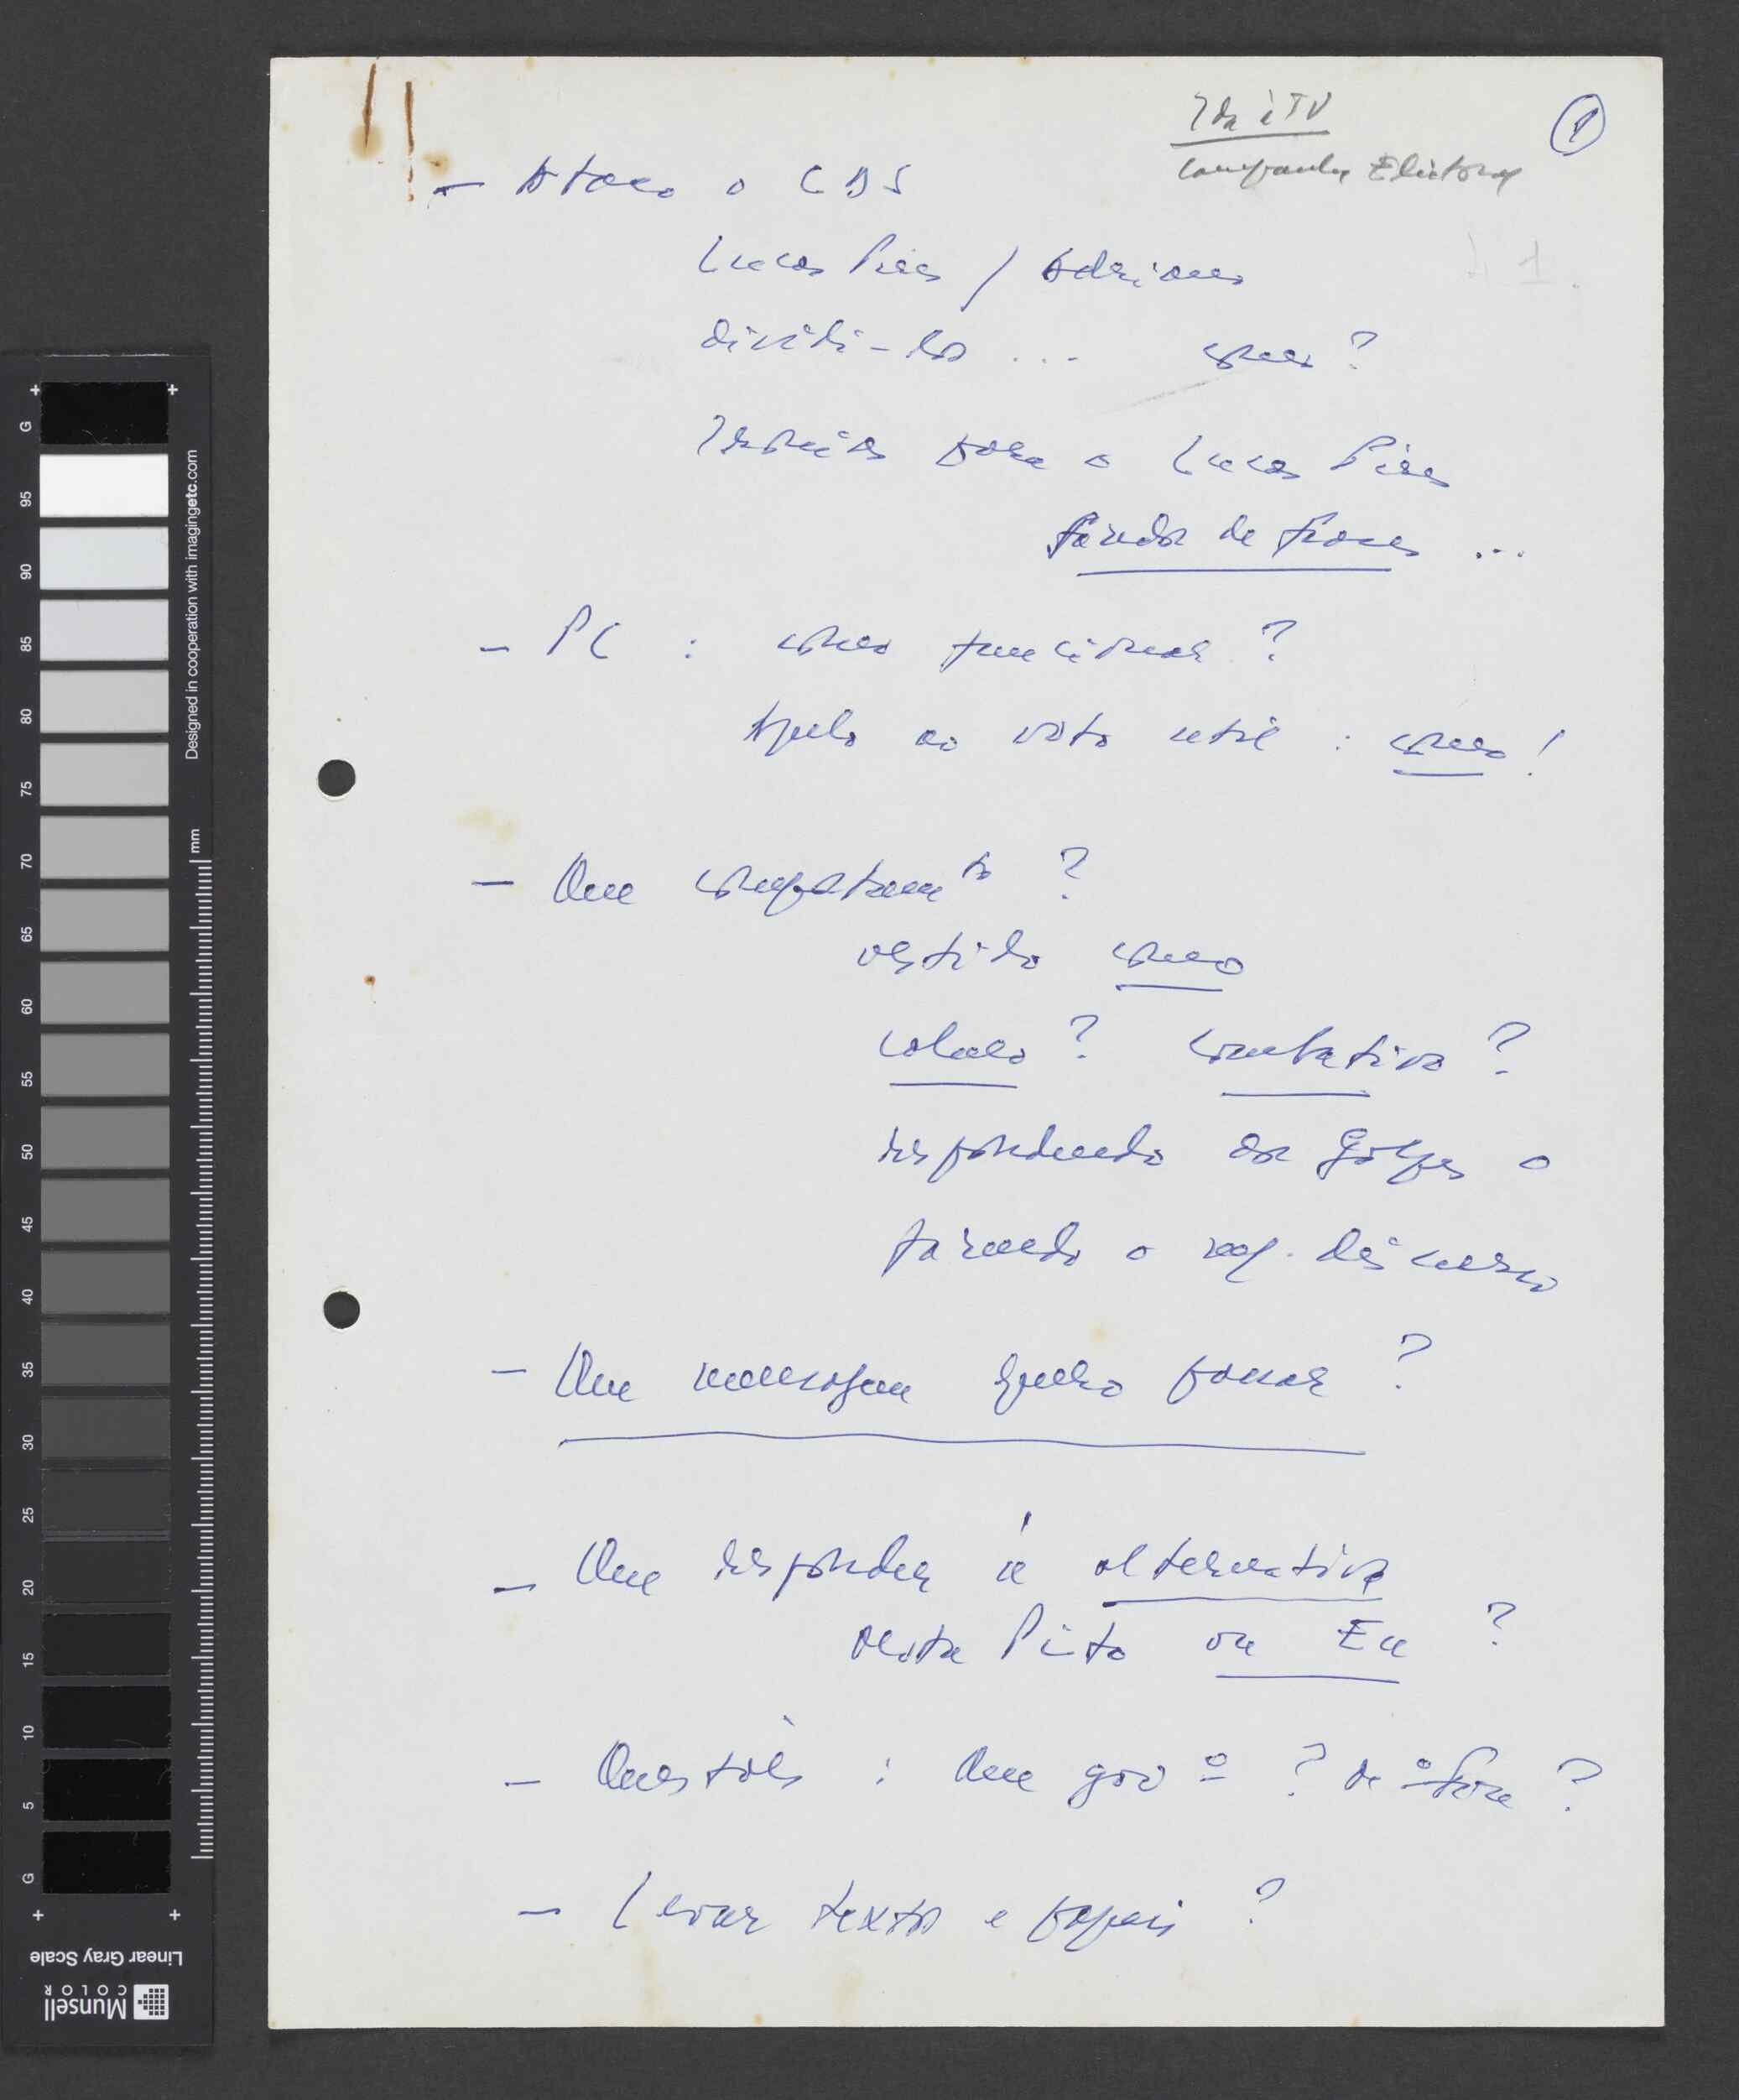 Ida à TV
Campanha Eleitoral
1
– Ataco o CDS
Lucas Pires / Adriano
dividi-los ... como?
Ironia para o Lucas Pires
fazedor de frases ...
– PC : como funcionar ?
Apelo ao voto util : como !
– Que comportamto ?
vestido como
calmo ? combativo ?
respondendo aos golpes o
fazendo o meu discurso
– Que mensagem quero passar ?
– Que responder à alternativa
Mota Pinto ou Eu ?
– Questões : Que govº ?
– Levar textos e papeis ?
G
95
90
85
80
75
70
65
60
55
50
45
40
35
30
25
20
15
10
5
G
Designed in cooperation with imagingetc.com
mm
Linear Gray Scale
Munsell
COLOR